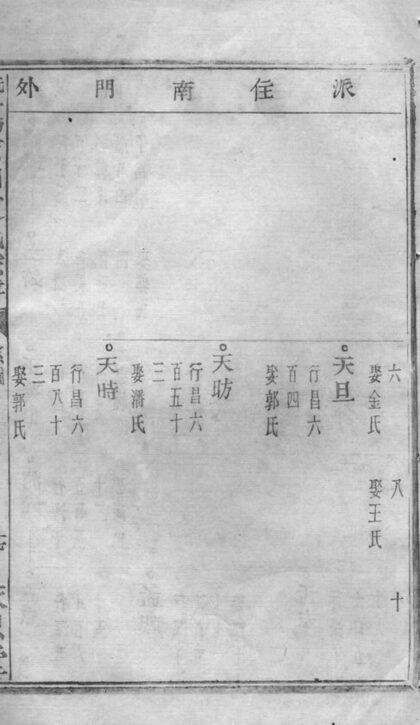 派住南門外
六　八　十
娶金氏　娶王氏
天旦
行昌六
百四
娶郭氏
天昉
行昌六
百五十
三
娶潘氏
天時
行昌六
百八十
三
娶郭氏